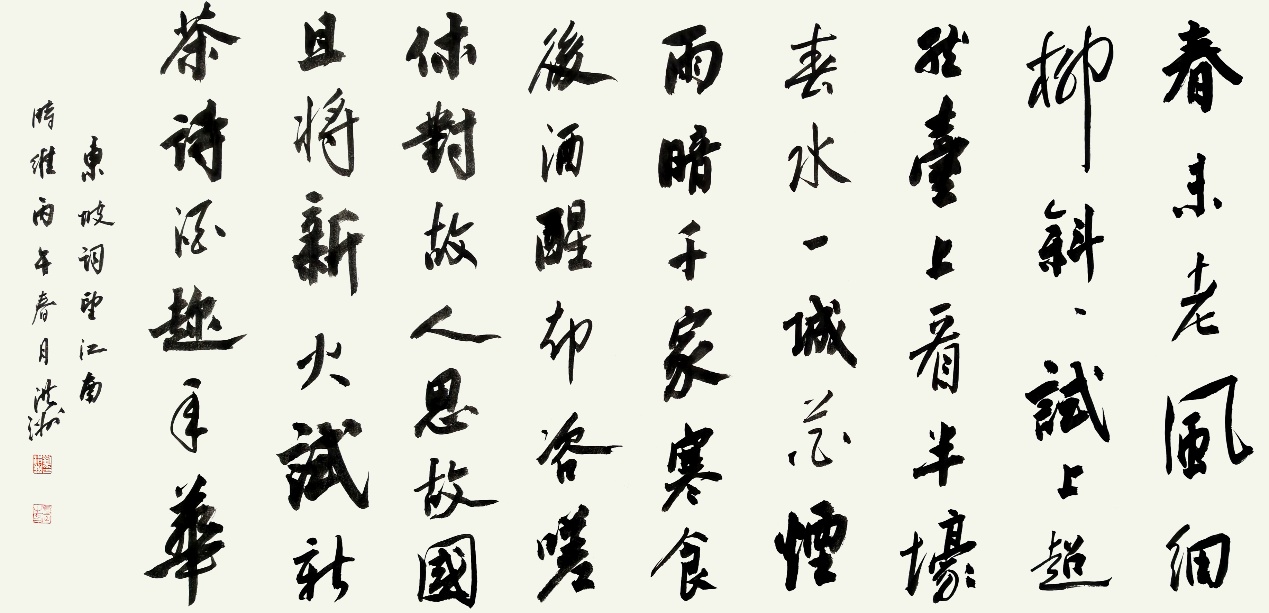 春未老風細
柳斜、試上超
然臺上看半壕
春水一城花煙
雨暗千家寒食
後酒醒却咨嗟
休對故人思故國
且將新火試新
茶詩酒趁年華
東坡詞望江南
時維丙午春月洪